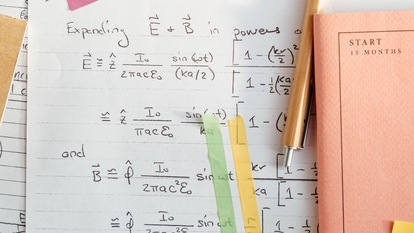 Expanding E⃗ + B⃗ in powers o
E⃗ ≅ ẑ I₀/2πacε₀ sin(ωt)/(ka/2) [1 - (kr/2)²
[1 - ½(ka/2
≅ ẑ I₀/πacε₀ sin(ωt)/ka [1 - (
and
B⃗ ≅ φ̂ I₀/2πac²ε₀ sin ωt kr/ka [1 - ½
[1 - ½
≅ φ̂ I₀ sin ωt
START
15 MONTHS